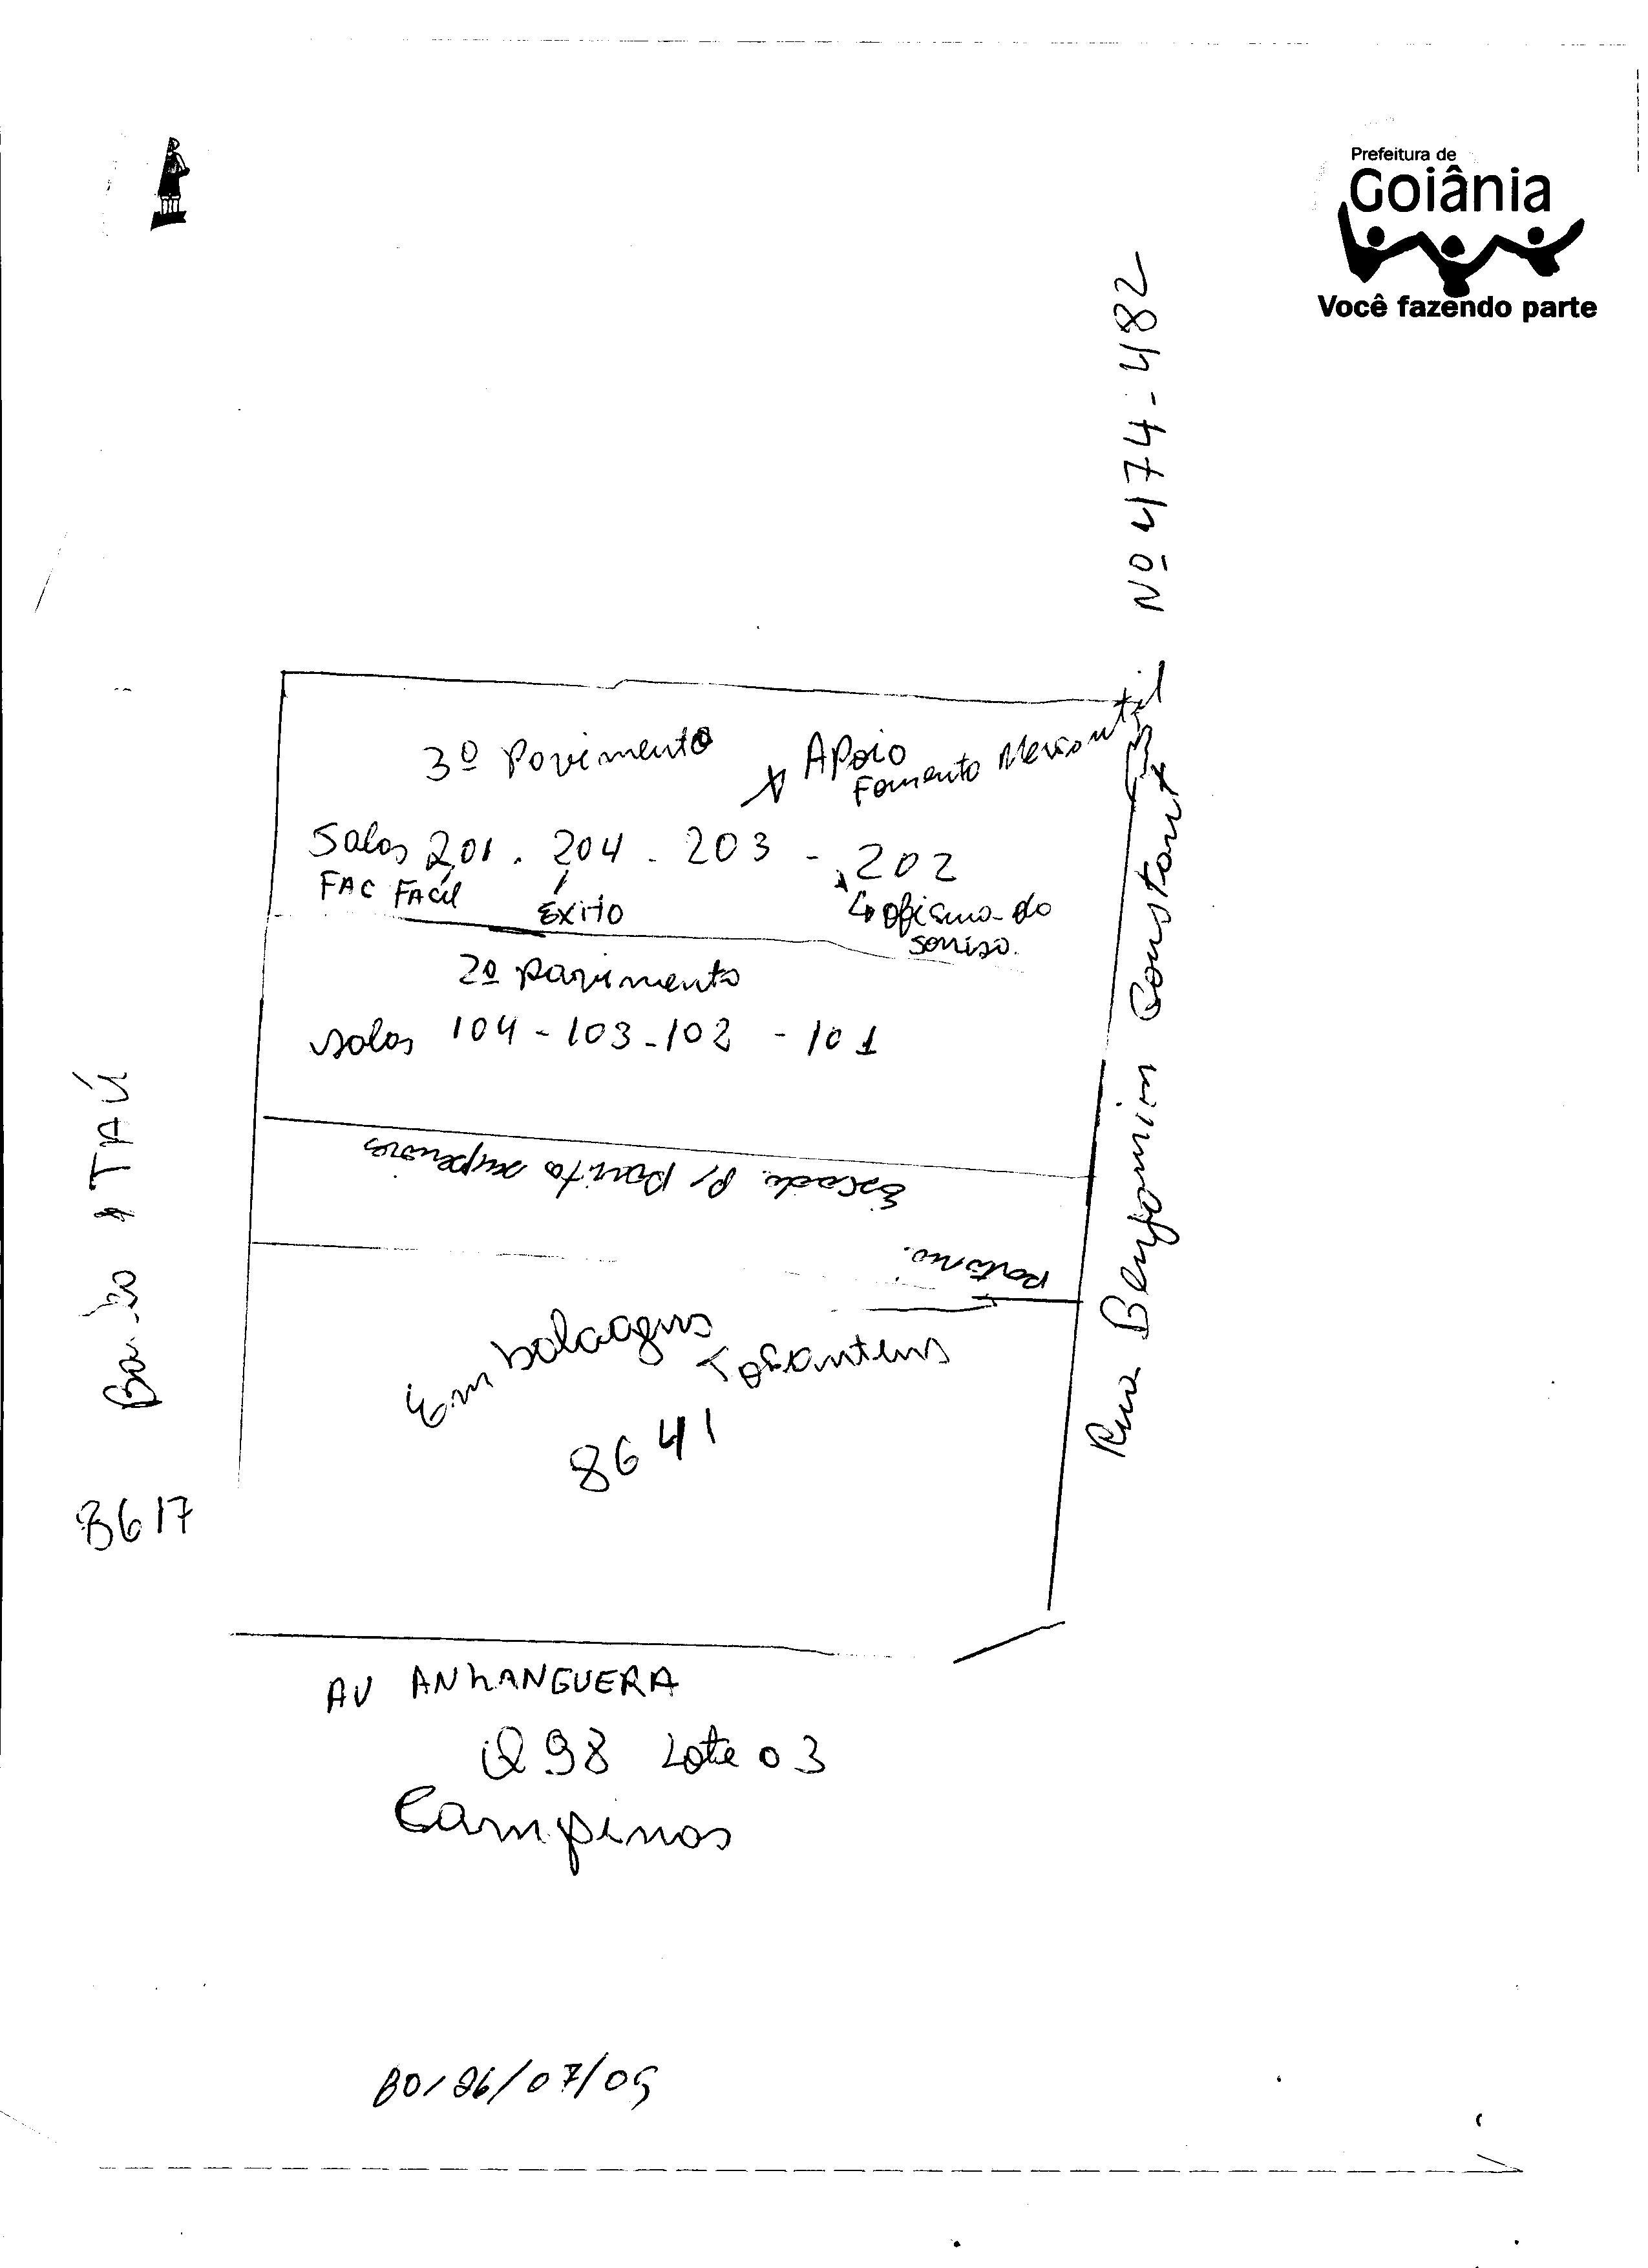 Prefeitura de
Goiânia
Você fazendo parte
Nº 474-482
3º Pavimento
Apoio
Fomento Mercantil
Salas 201 . 204 - 203 - 202
FAC FAciL
ÉxiTO
oficina do
sorriso.
2º Pavimento
salas 104 - 103 - 102 - 101
Escada P/ Pavito superiores
Portaria.
Embalagens
Tocantins
8641
Rua Benjamim Constant
Banco ITAÚ
8617
AV ANhANGUERA
Q 98 Lote 03
Campinas
26/07/05